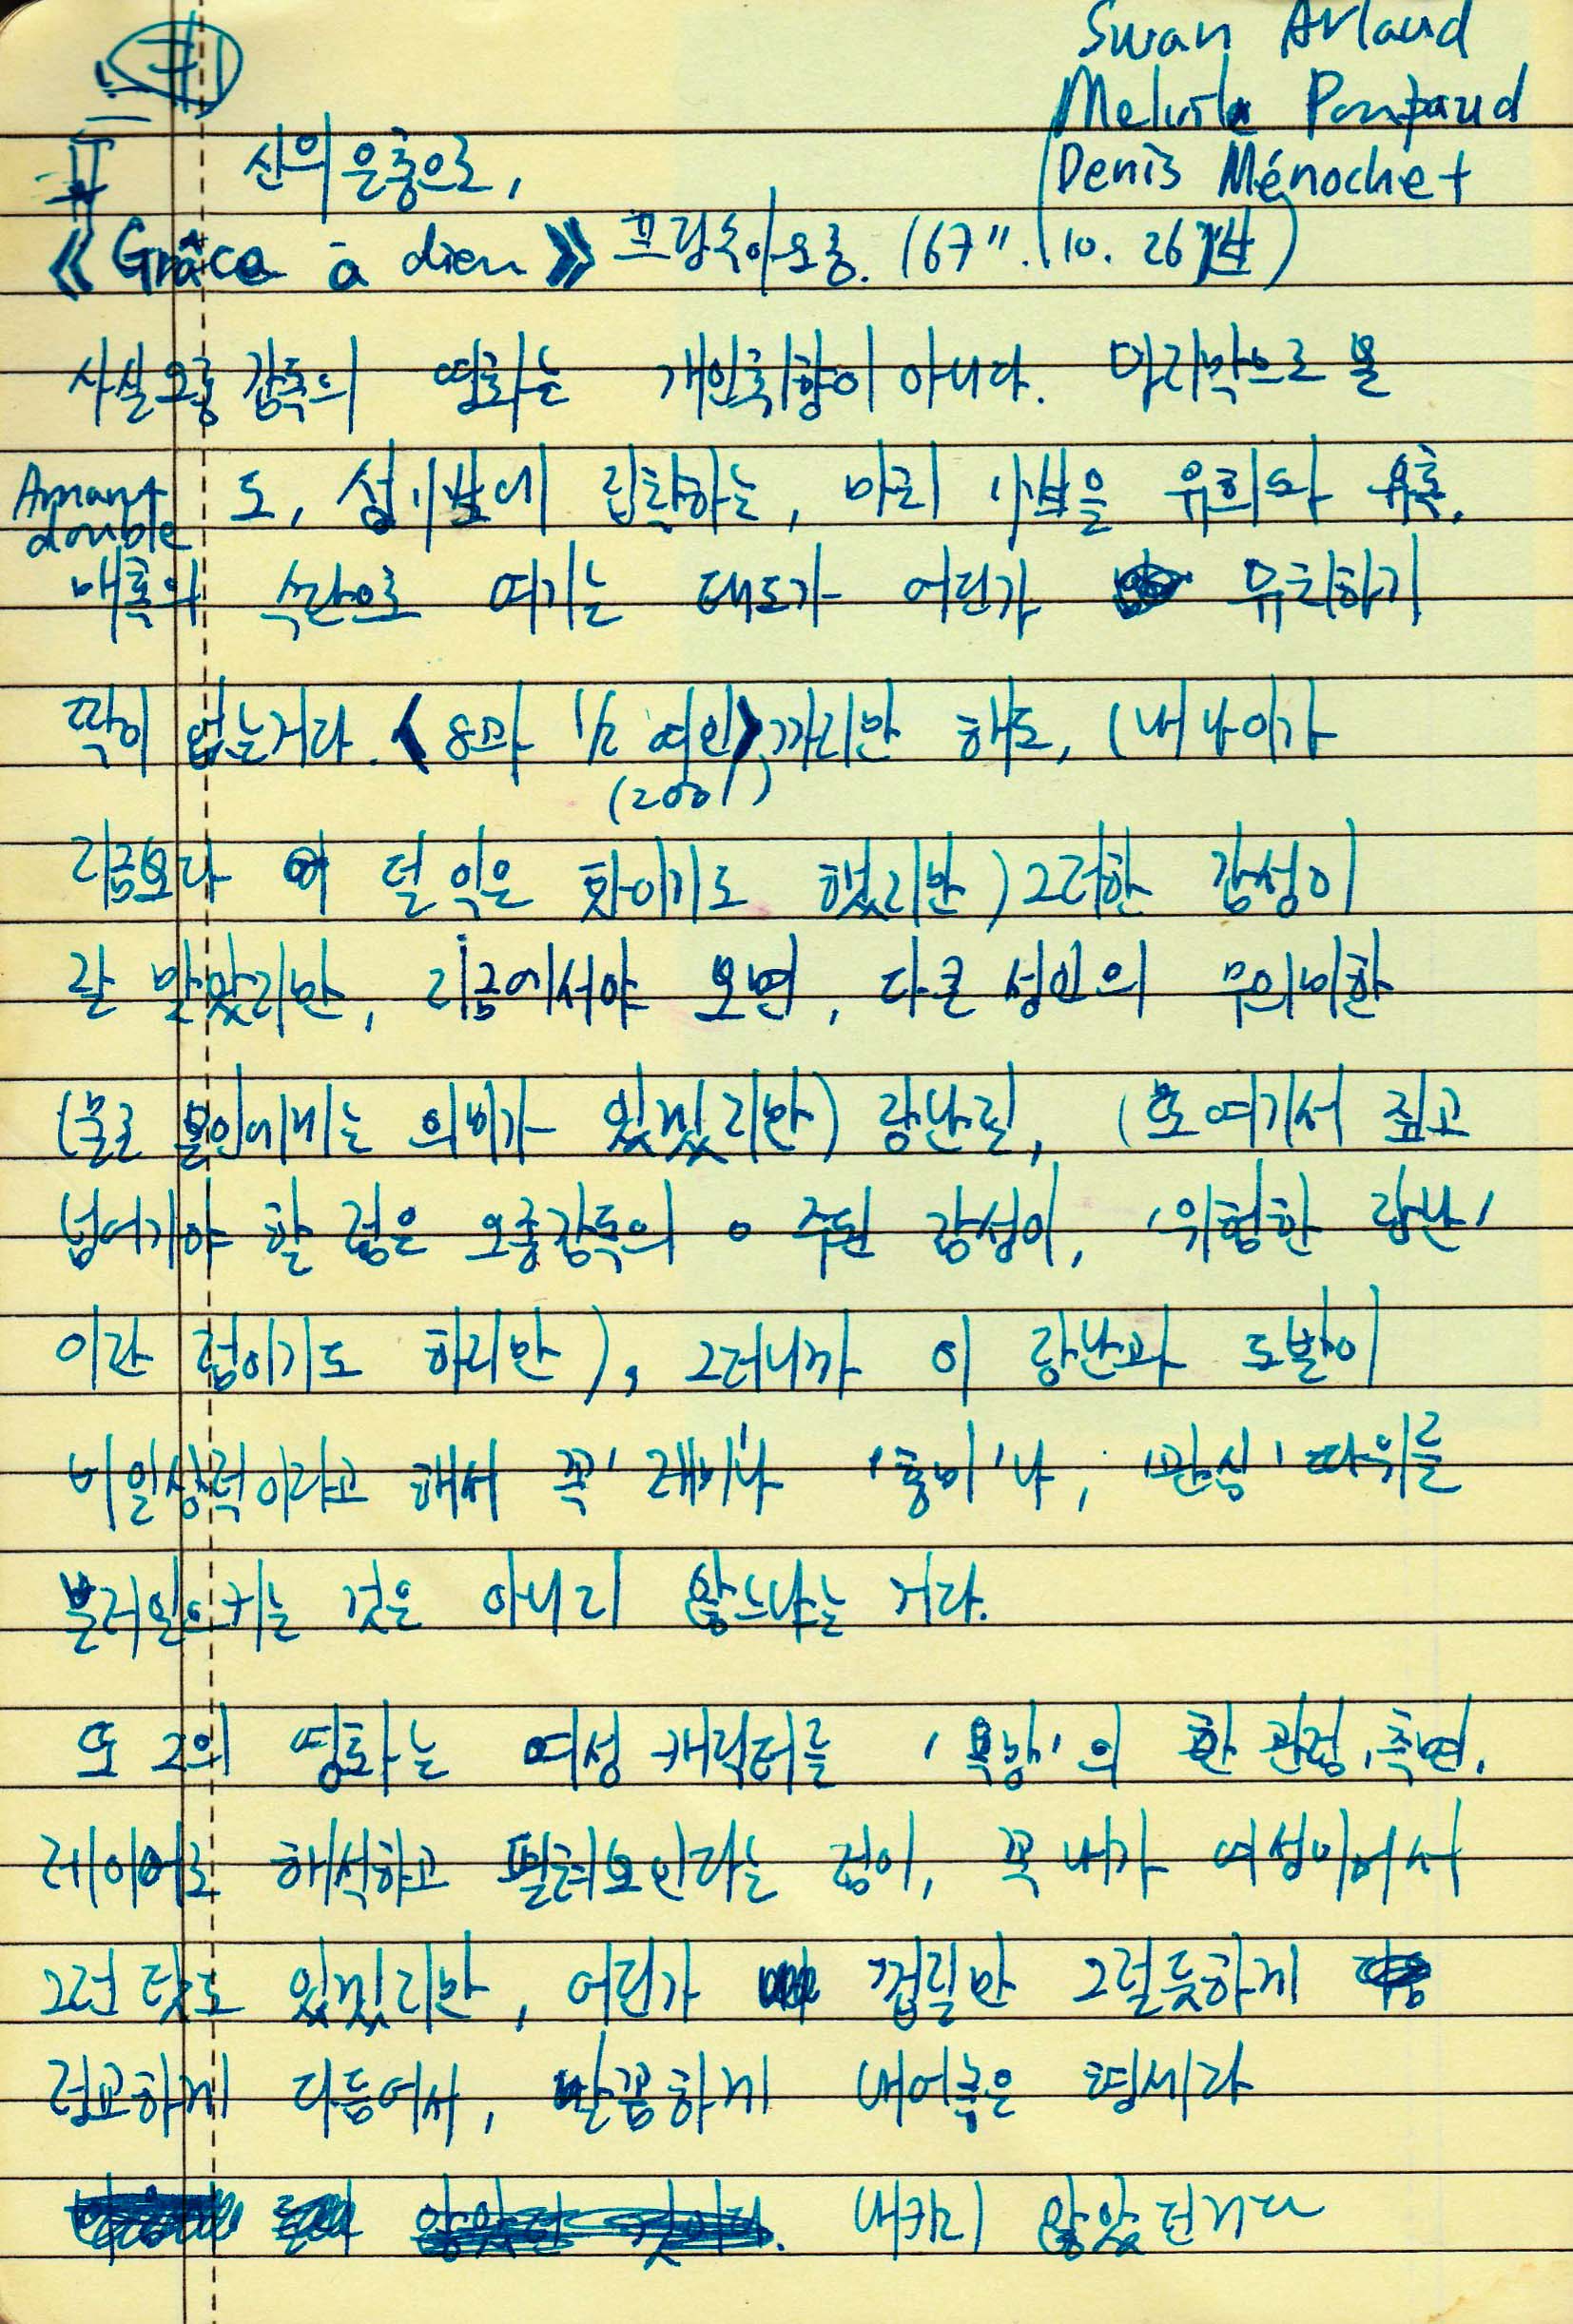 Swan Arlaud
Melvile Poupaud
Denis Ménochet
신의 은총으로,
《Grâce à dieu》 프랑수아 오종. (67". 10. 26
사실 오종 감독의 영화는 개인취향이 아니다. 마지막으로 본
Amant
double
도, 성기발에 집착하는, 마치 사람을 유희와 유혹,
매혹의 수단으로 여기는 태도가 어딘가 유치하기
짝이 없는거라. <8과 1/2 여인>까지만 해도, (내 나이가
(2001)
지금보다 덜 익은 탓이기도 했지만) 그러한 감성이
잘 맞았지만, 지금에서야 보면, 다 큰 성인의 무의미한
(물론 본인에게는 의미가 있겠지만) 장난질, (또 여기서 짚고
넘어가야 할 점은 오종감독의 주된 감성이, '위험한 장난'
이란 점이기도 하지만), 그러니까 이 장난과 도발이
비일상적이라고 해서 꼭 '재미'나 '흥미'나, '관심' 따위를
불러일으키는 것은 아니지 않느냐는 거다.
또 그의 영화는 여성 캐릭터를 '욕망'의 한 관점, 측면,
레이어로 해석하고 펼쳐보인다는 점이, 꼭 내가 여성이어서
그런 탓도 있겠지만, 어딘가 껍질만 그럴듯하게
정교하게 다듬어서, 말끔하게 내어놓은 형세라
내키지 않았던거다